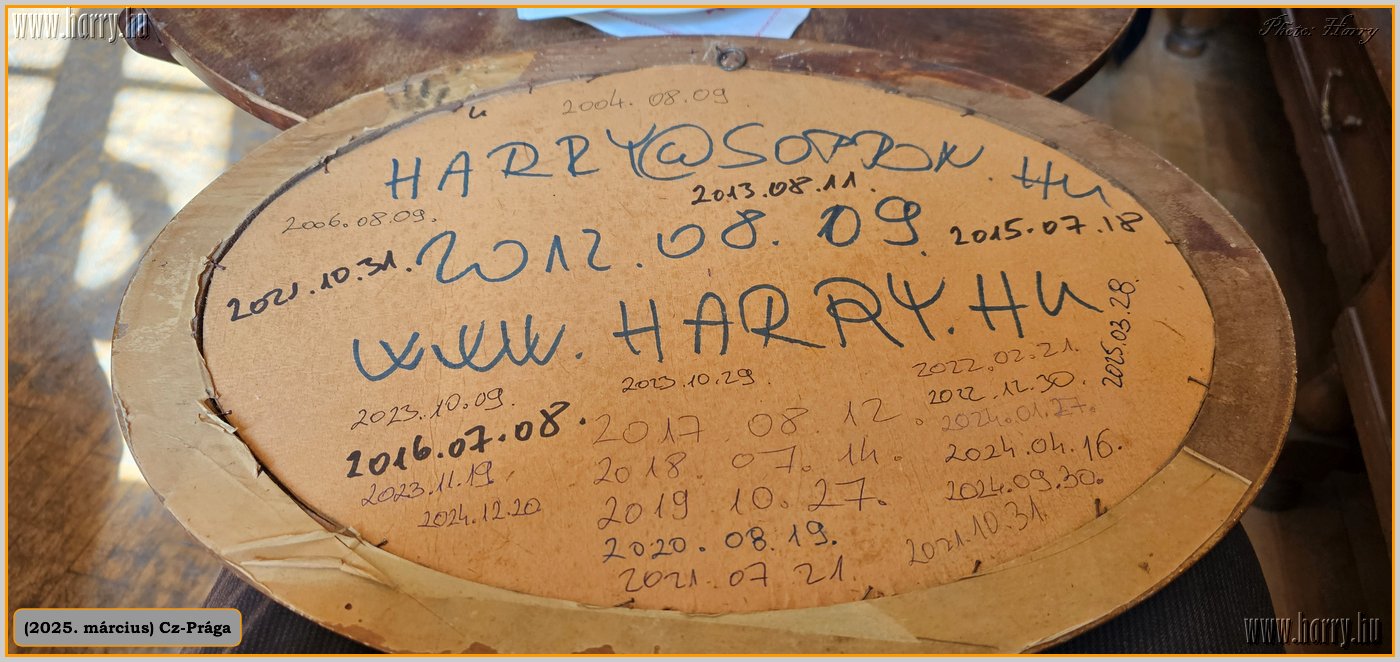 www.harry.hu
Photo: Harry
2004. 08.09.
HARRY@SOPRON.HU
2013.08.11.
2006.08.09.
2012.08.09.
2015.07.18
2021.10.31.
WWW.HARRY.HU
2025.03.28.
2022.02.21.
2023.10.29.
2022.12.30.
2023.10.09.
2024.01.27.
2016.07.08.
2017.08.12.
2024.04.16.
2018.07.14.
2023.11.19
2024.09.30.
2019 10.27.
2024.12.20
2020.08.19.
2021.10.31.
2021.07 21.
(2025. március) Cz-Prága
www.harry.hu